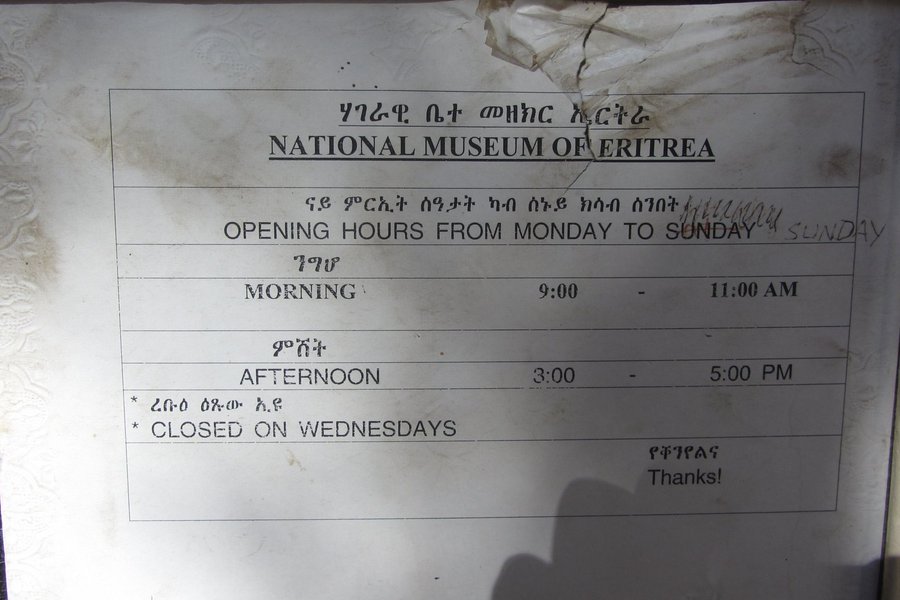 ሃገራዊ ቤተ መዘክር ኤርትራ
NATIONAL MUSEUM OF ERITREA
ናይ ምርኢት ሰዓታት ካብ ሰኑይ ክሳብ ሰንበት
OPENING HOURS FROM MONDAY TO SUNDAY SUNDAY
ንግሆ
MORNING 9:00 - 11:00 AM
ምሸት
AFTERNOON 3:00 - 5:00 PM
* ረቡዕ ዕጹው እዩ
* CLOSED ON WEDNESDAYS
የቐንየልና
Thanks!